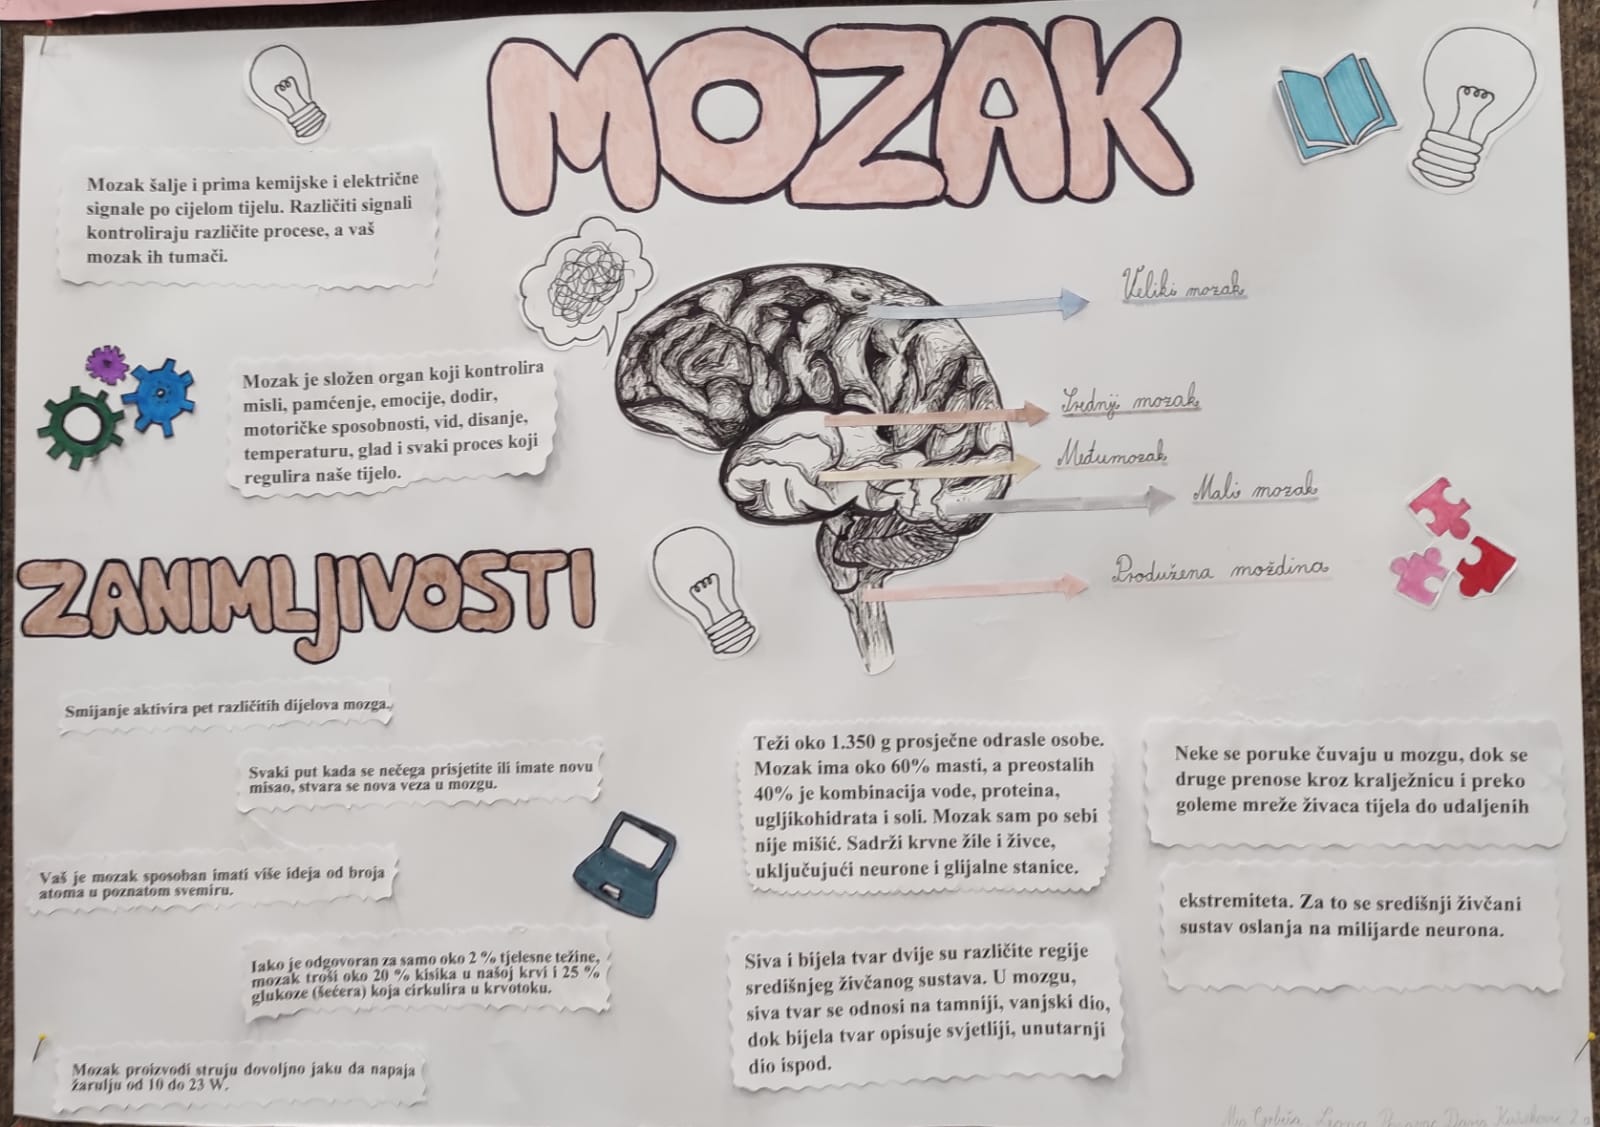 MOZAK
Mozak šalje i prima kemijske i električne
signale po cijelom tijelu. Različiti signali
kontroliraju različite procese, a vaš
mozak ih tumači.
Mozak je složen organ koji kontrolira
misli, pamćenje, emocije, dodir,
motoričke sposobnosti, vid, disanje,
temperaturu, glad i svaki proces koji
regulira naše tijelo.
Veliki mozak
Srednji mozak
Međumozak
Mali mozak
Produžena moždina
ZANIMLJIVOSTI
Smijanje aktivira pet različitih dijelova mozga.
Svaki put kada se nečega prisjetite ili imate novu
misao, stvara se nova veza u mozgu.
Vaš je mozak sposoban imati više ideja od broja
atoma u poznatom svemiru.
Iako je odgovoran za samo oko 2 % tjelesne težine,
mozak troši oko 20 % kisika u našoj krvi i 25 %
glukoze (šećera) koja cirkulira u krvotoku.
Mozak proizvodi struju dovoljno jaku da napaja
žarulju od 10 do 23 W.
Teži oko 1.350 g prosječne odrasle osobe.
Mozak ima oko 60% masti, a preostalih
40% je kombinacija vode, proteina,
ugljikohidrata i soli. Mozak sam po sebi
nije mišić. Sadrži krvne žile i živce,
uključujući neurone i glijalne stanice.
Siva i bijela tvar dvije su različite regije
središnjeg živčanog sustava. U mozgu,
siva tvar se odnosi na tamniji, vanjski dio,
dok bijela tvar opisuje svjetliji, unutarnji
dio ispod.
Neke se poruke čuvaju u mozgu, dok se
druge prenose kroz kralježnicu i preko
goleme mreže živaca tijela do udaljenih
ekstremiteta. Za to se središnji živčani
sustav oslanja na milijarde neurona.